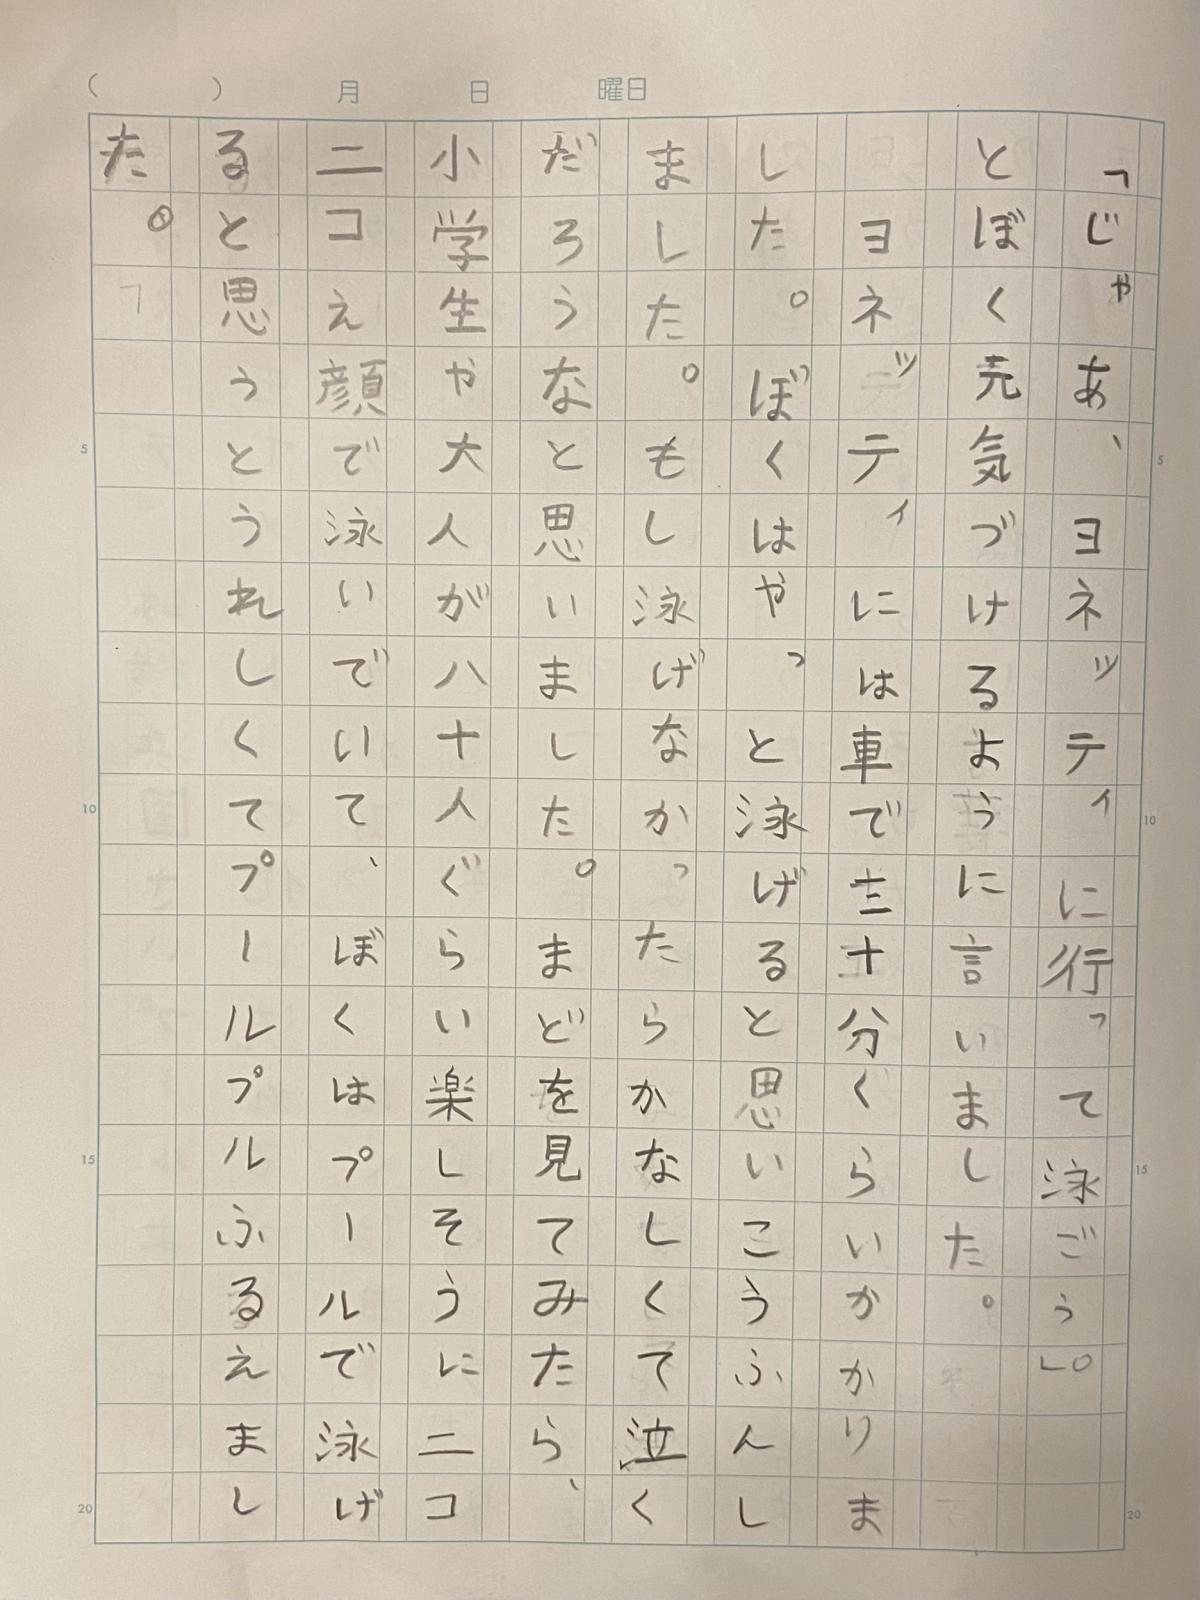 （　　）　月　日　曜日
「じゃあ、ヨネッティに行って泳ごう。」
とぼく元気づけるように言いました。
ヨネッティには車で三十分ぐらいかかりま
した。ぼくはやっと泳げると思いこうふんし
ました。もし泳げなかったらかなしくて泣く
だろうなと思いました。まどを見てみたら、
小学生や大人が八十人ぐらい楽しそうにニコ
ニコえ顔で泳いでいて、ぼくはプールで泳げ
ると思うとうれしくてプールプルふるえまし
た。
5
10
15
20
5
10
15
20